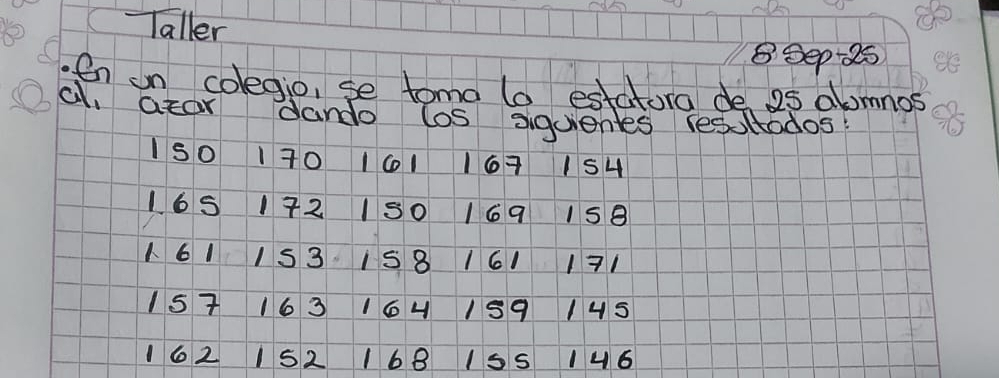 Taller
8 Sep-25
• En un colegio, se toma la estatura de 25 alumnos
al, azar dando los siguientes resultados:
150 170 161 167 154
165 172 150 169 158
161 153 158 161 171
157 163 164 159 145
162 152 168 155 146